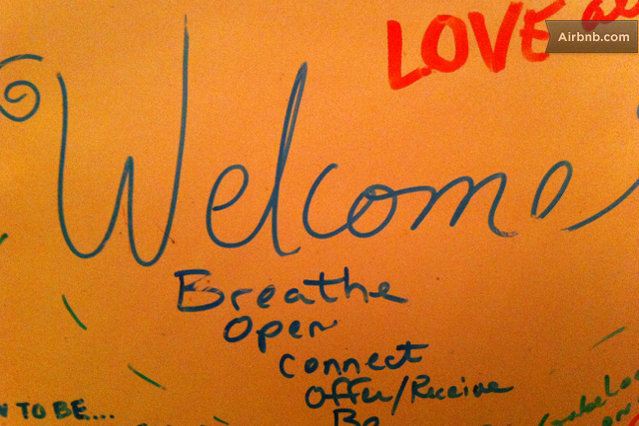 LOVE
Airbnb.com
Welcome
Breathe
Open
Connect
Offer/Receive
Be
TO BE....